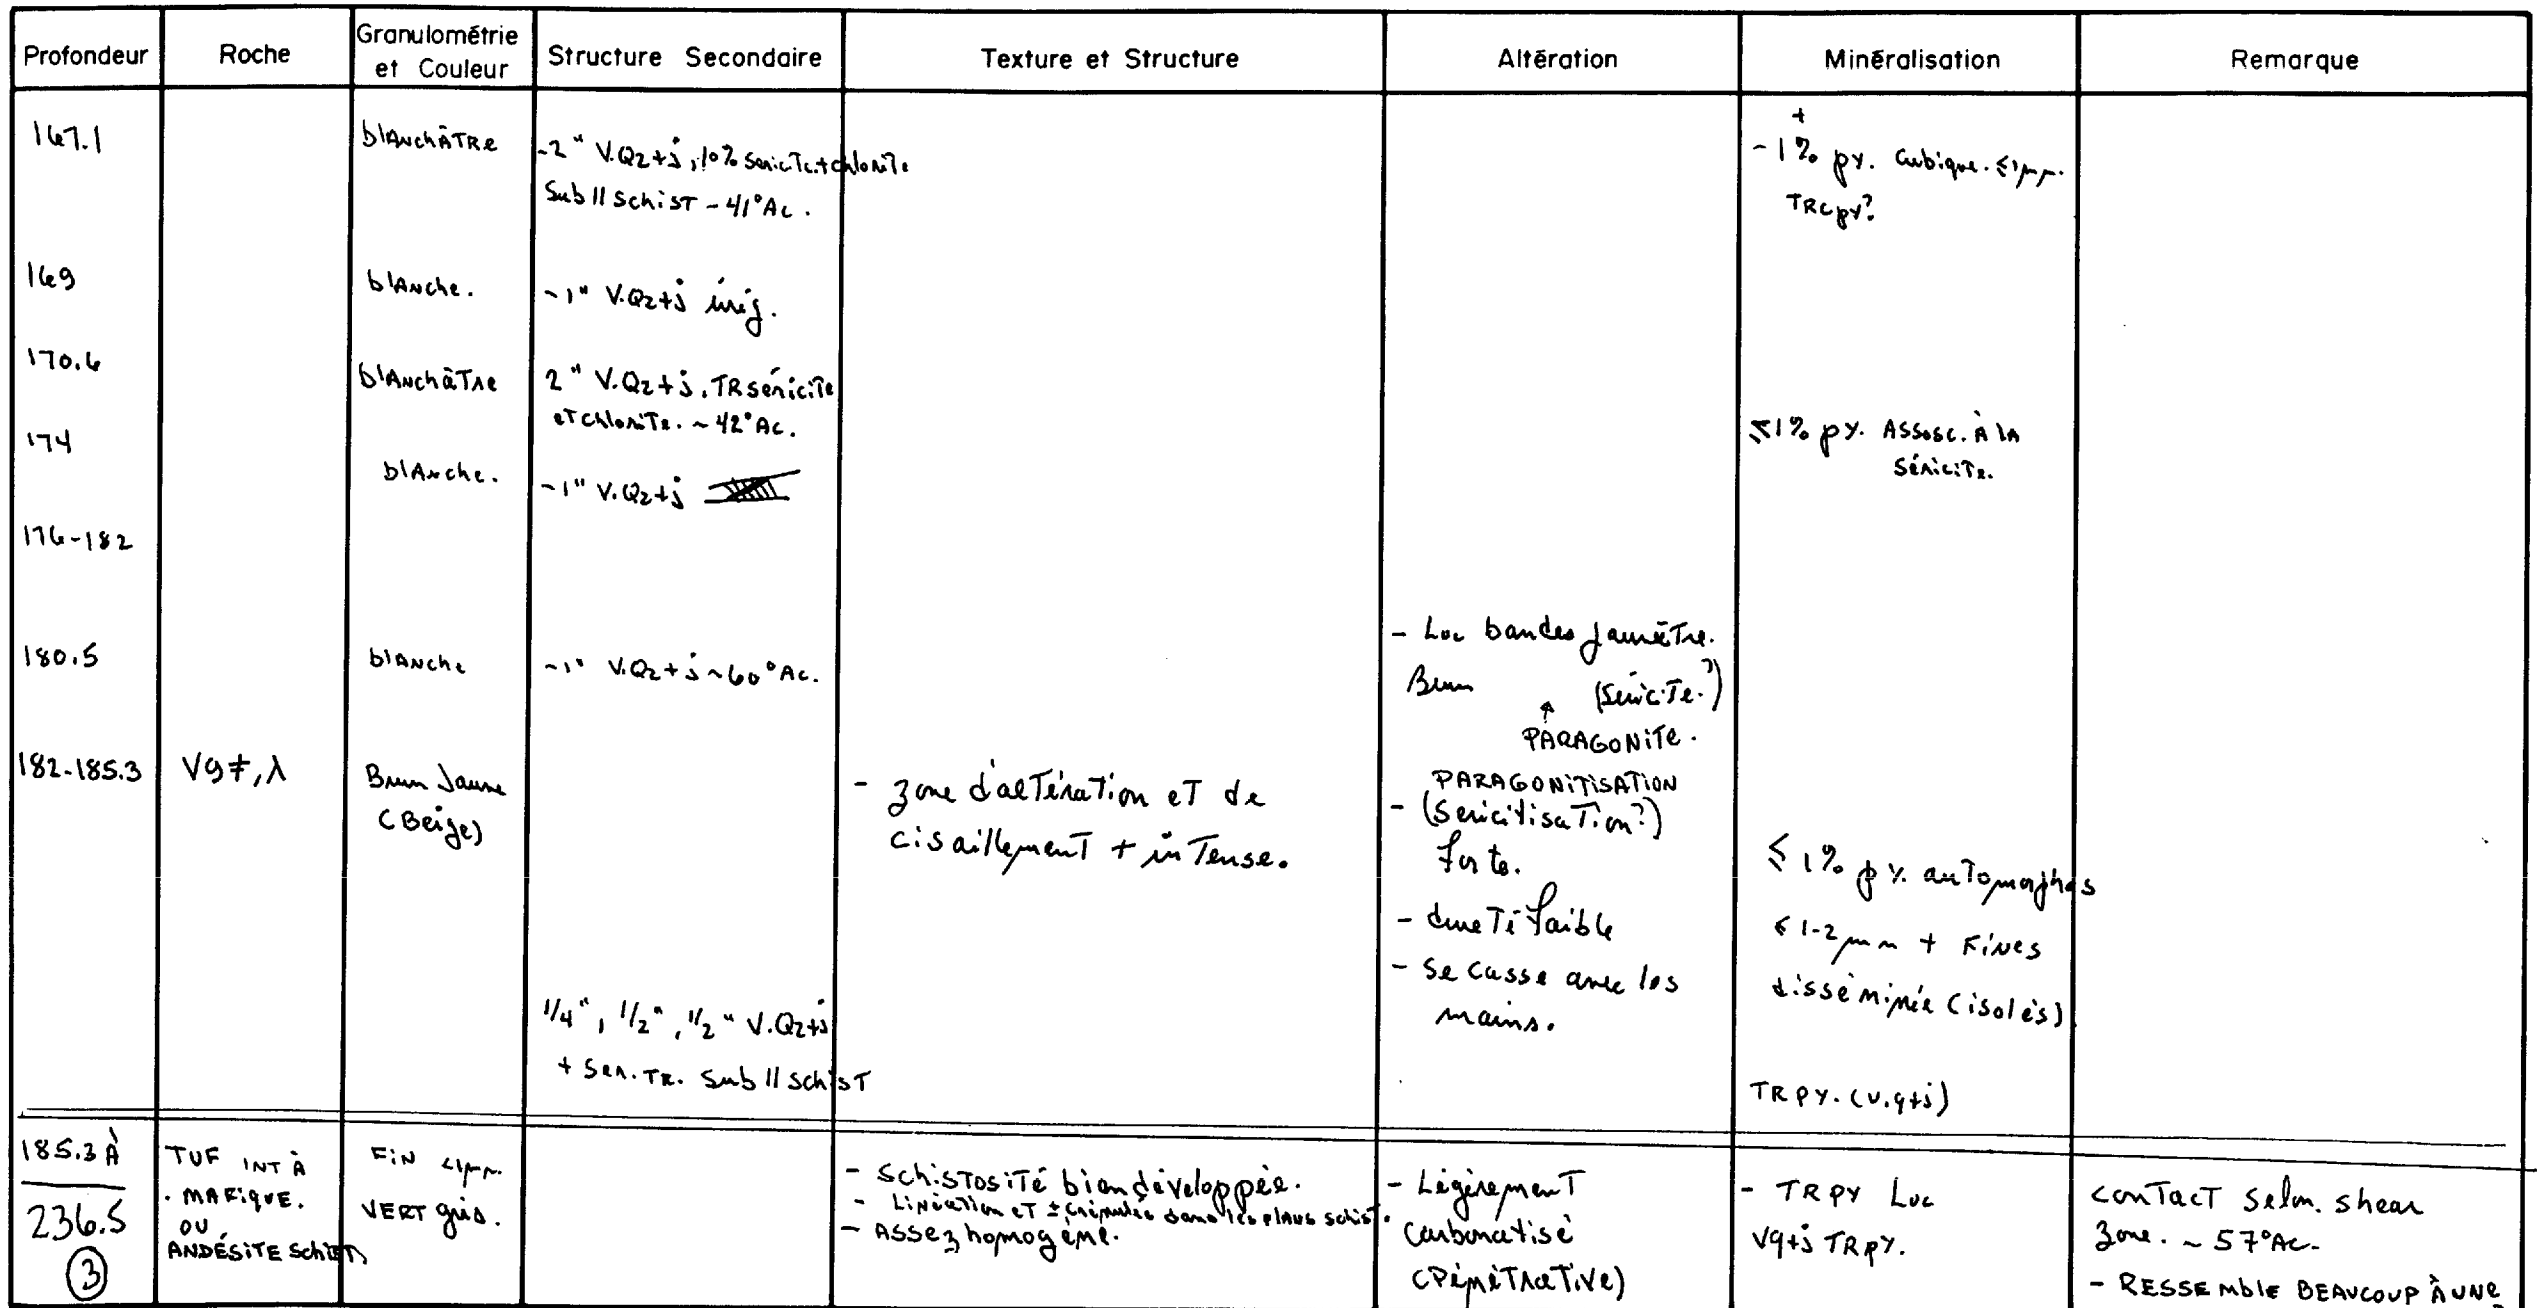 Profondeur
Roche
Granulométrie
et Couleur
Structure Secondaire
Texture et Structure
Altération
Minéralisation
Remarque
167.1
blanchâtre
-2" V.Qz+j, 10% sericite+chlorite
Sub // schist - 41°Ac.
+
- 1% py. cubique. ≤1mm.
TRcpy?
169
blanche.
~1" V.Qz+j irrég.
170.6
blanchâtre
2" V.Qz+j, TR séricite
et chlorite. ~ 42°Ac.
174
blanche.
~1" V.Qz+j
≤1% py. Assosc. à la
séricite.
176-182
- Loc bandes jaunâtre.
Brun (séricite?)
↑
PARAGONITE.
180.5
blanche
~1" V.Qz+j ~60°Ac.
182-185.3
Brun Jaune
(Beige)
- zone d'altération et de
cisaillement + intense.
PARAGONITISATION
- (sericitisation?)
forte.
- dureté faible
- se casse avec les
mains.
≤ 1% py. automorphes
≤ 1-2mm + Fines
disséminée (isolés)
1/4", 1/2", 1/2" V.Qz+j
+ Ser. TR. Sub // schist
TR py. (v.q+j)
185.3 À
236.5
③
TUF INT À
MAFIQUE.
OU
ANDÉSITE SCHIST
FIN <1mm.
VERT gris.
- Schistosité bien développée.
- Linéation et ± crénulée dans les plans schist.
- Assez homogène.
- Légèrement
carbonatisé
(Pénétrative)
- TR py Loc
Vq+j TR py.
contact selon shear
zone. ~ 57°Ac.
- RESSEMBLE BEAUCOUP À UNE